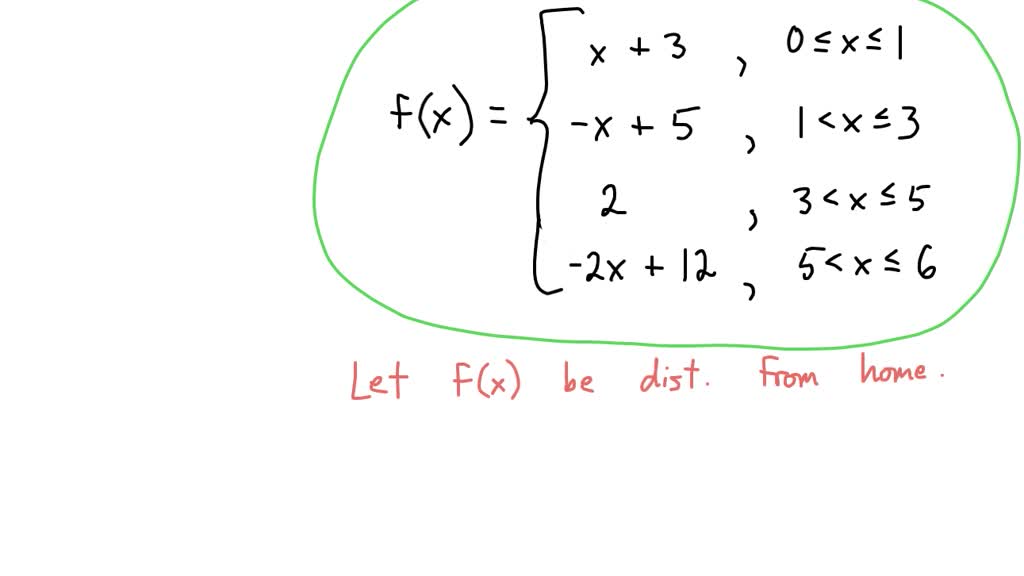 x + 3 , 0 ≤ x ≤ 1
f(x) = { -x + 5 , 1 < x ≤ 3
2 , 3 < x ≤ 5
-2x + 12 , 5 < x ≤ 6
Let f(x) be dist. from home.